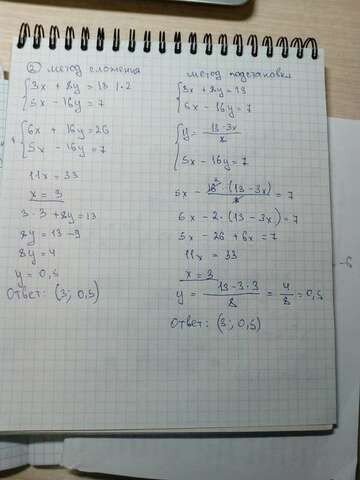 ② метод сложения
{3x + 8y = 13 | · 2
{5x - 16y = 7
+ {6x + 16y = 26
{5x - 16y = 7
11x = 33
x = 3
3 · 3 + 8y = 13
8y = 13 - 9
8y = 4
y = 0,5
Ответ: (3; 0,5)
метод подстановки
{3x + 8y = 13
{5x - 16y = 7
{y = (13 - 3x)/8
{5x - 16y = 7
5x - 16² · (13 - 3x)/8 = 7
5x - 2 · (13 - 3x) = 7
5x - 26 + 6x = 7
11x = 33
x = 3
y = (13 - 3 · 3)/8 = 4/8 = 0,5
Ответ: (3; 0,5)
-6